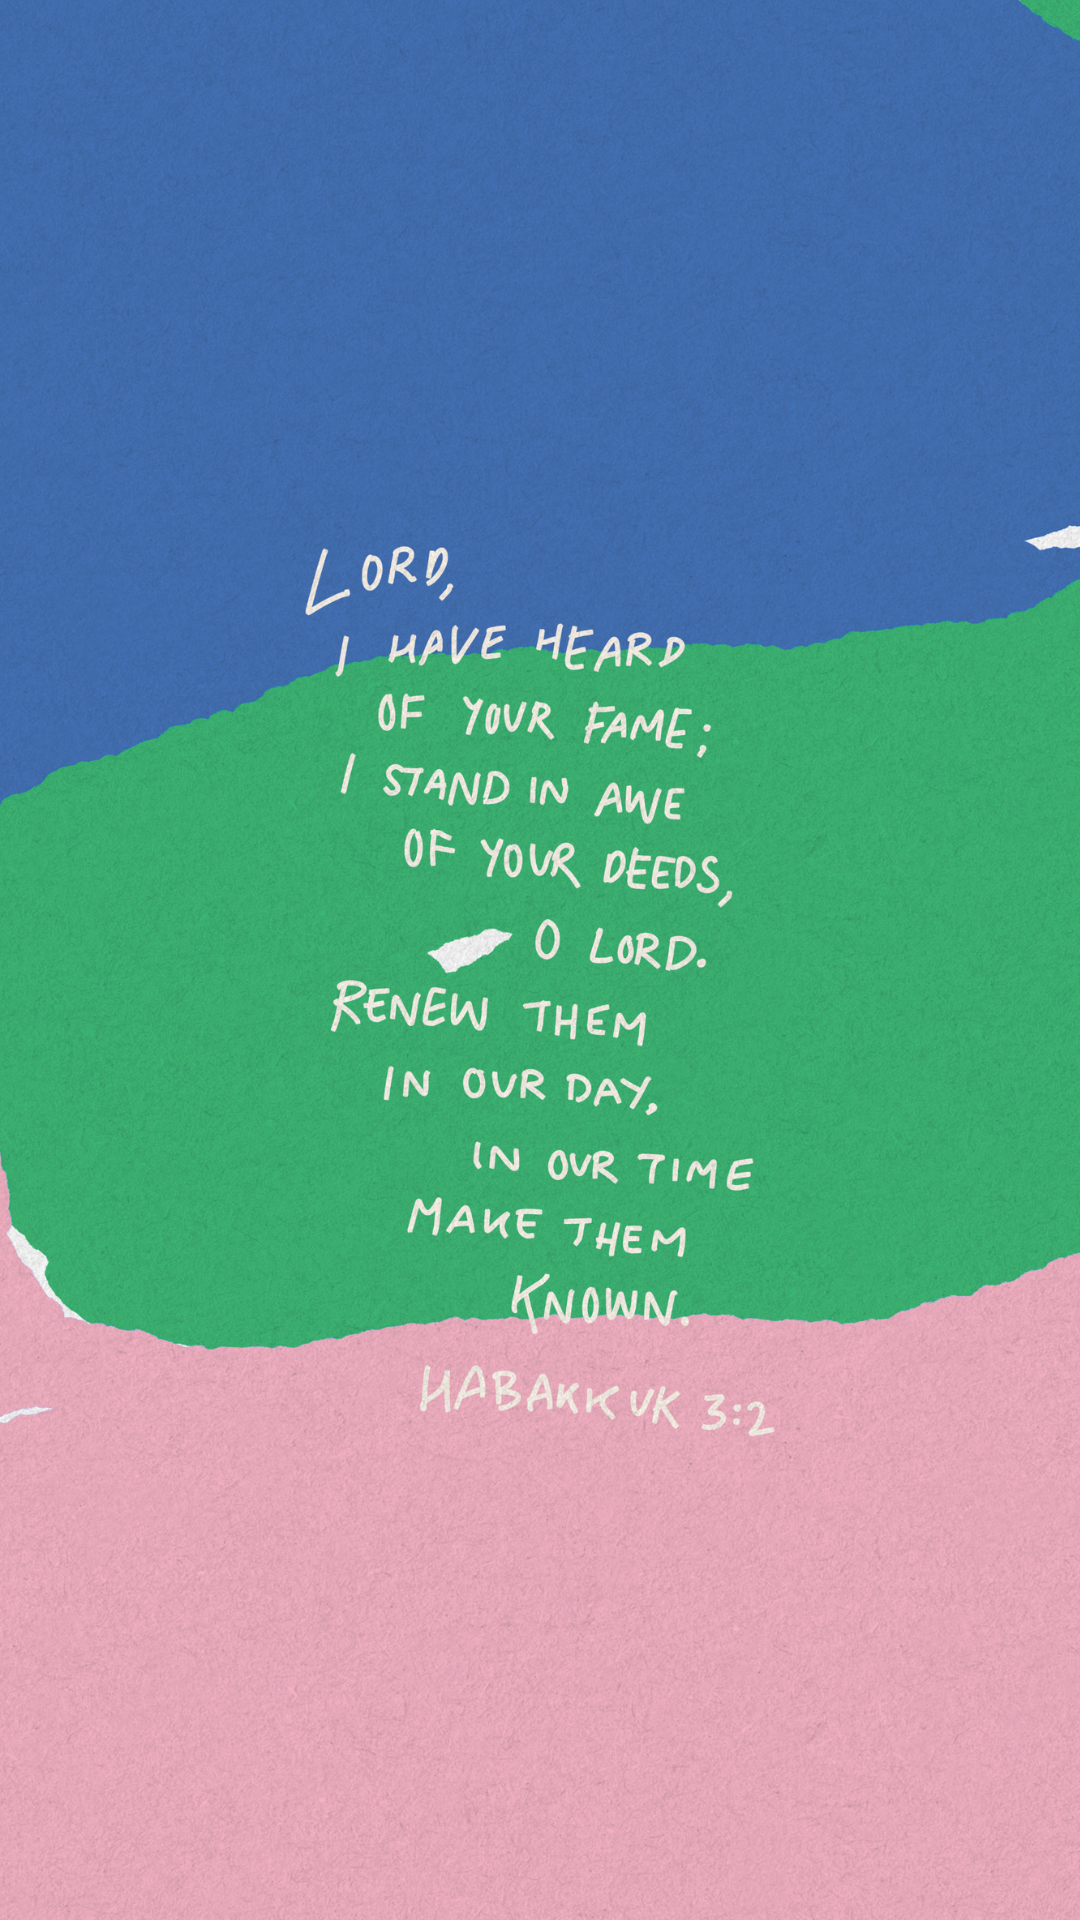 LORD,
I HAVE HEARD
OF YOUR FAME;
I STAND IN AWE
OF YOUR DEEDS,
O LORD.
RENEW THEM
IN OUR DAY,
IN OUR TIME
MAKE THEM
KNOWN.
HABAKKUK 3:2